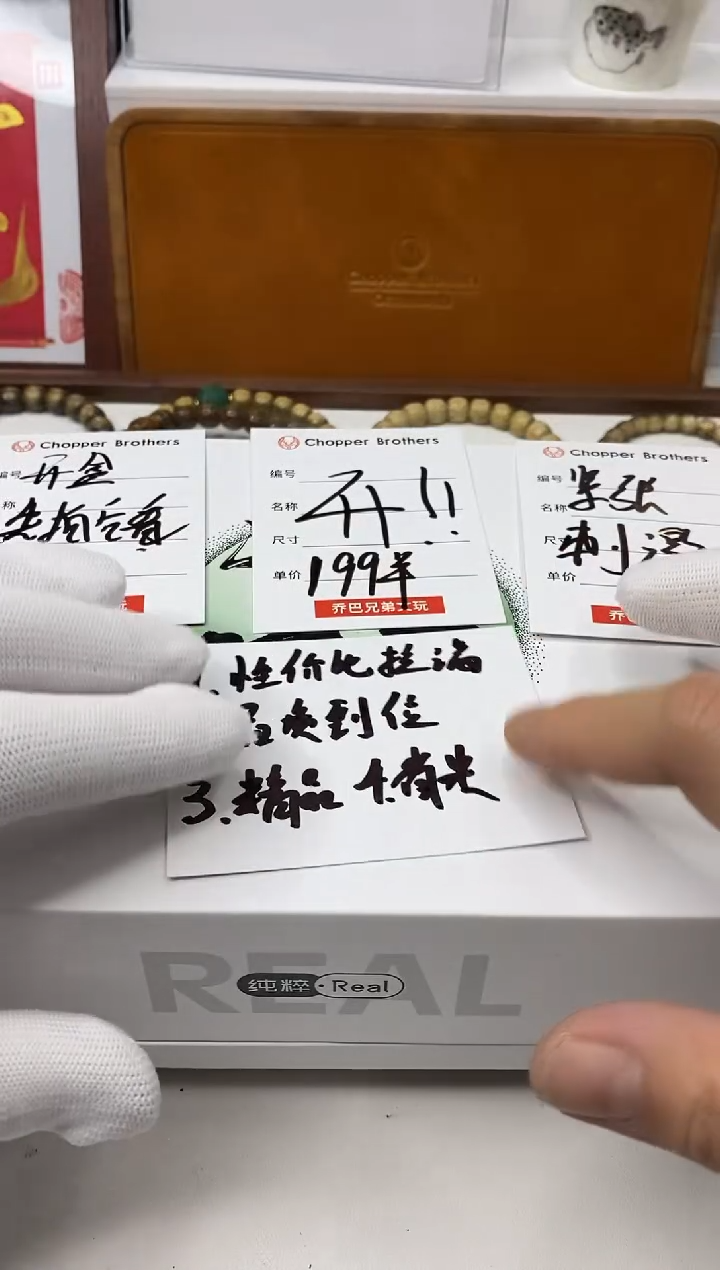 Chopper Brothers
编号 开金
称
Chopper Brothers
编号
名称 开!!
尺寸
单价 199半
乔巴兄弟文玩
Chopper Brothers
编号 紧张
名称
尺 刺激
单价
乔
玩
性价比拉满
到位
3.精品 4.有光
REAL
纯粹·Real